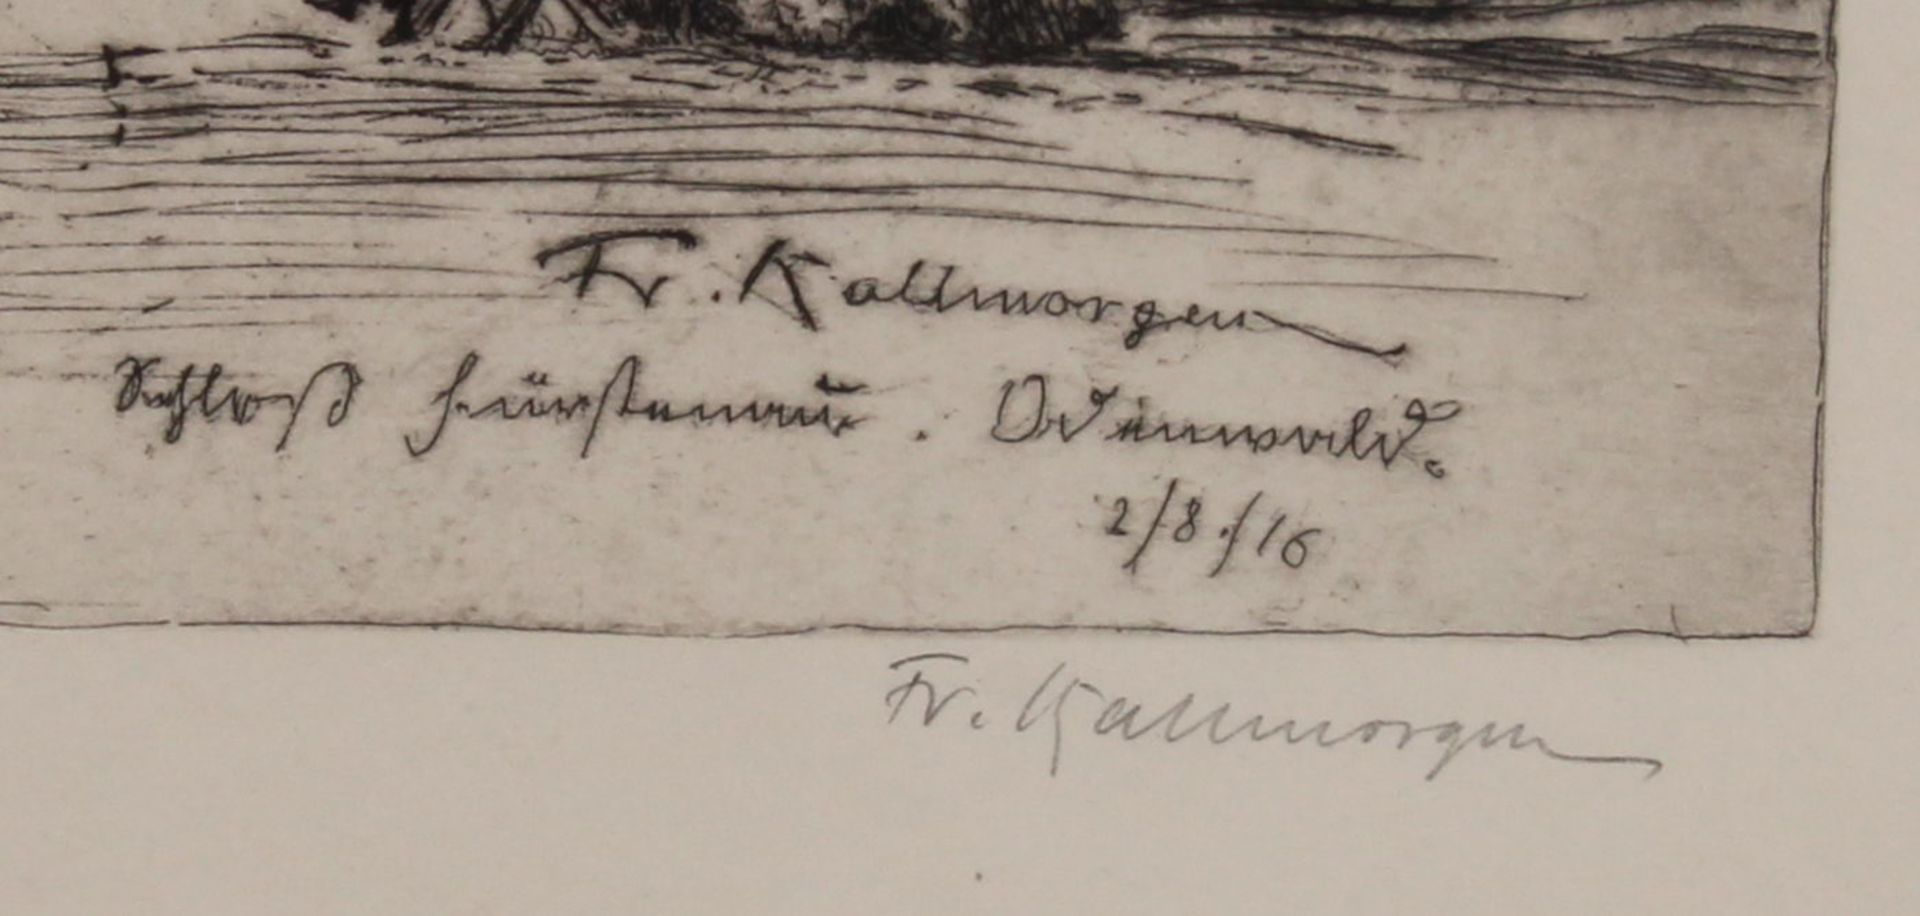 Fr. Kallmorgen
Schloß Fürstenau. Odenwald.
2/8./16
Fr. Kallmorgen